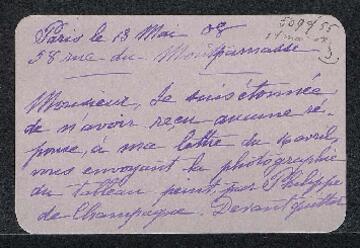 Paris le 13 Mai 08
58 rue du Montparnasse
Monsieur, Je suis étonnée
de n'avoir reçu aucune ré-
ponse, à ma lettre du avril
vous envoyant la photographie
du tableau peint par Philippe
de Champagne. Devant quitter